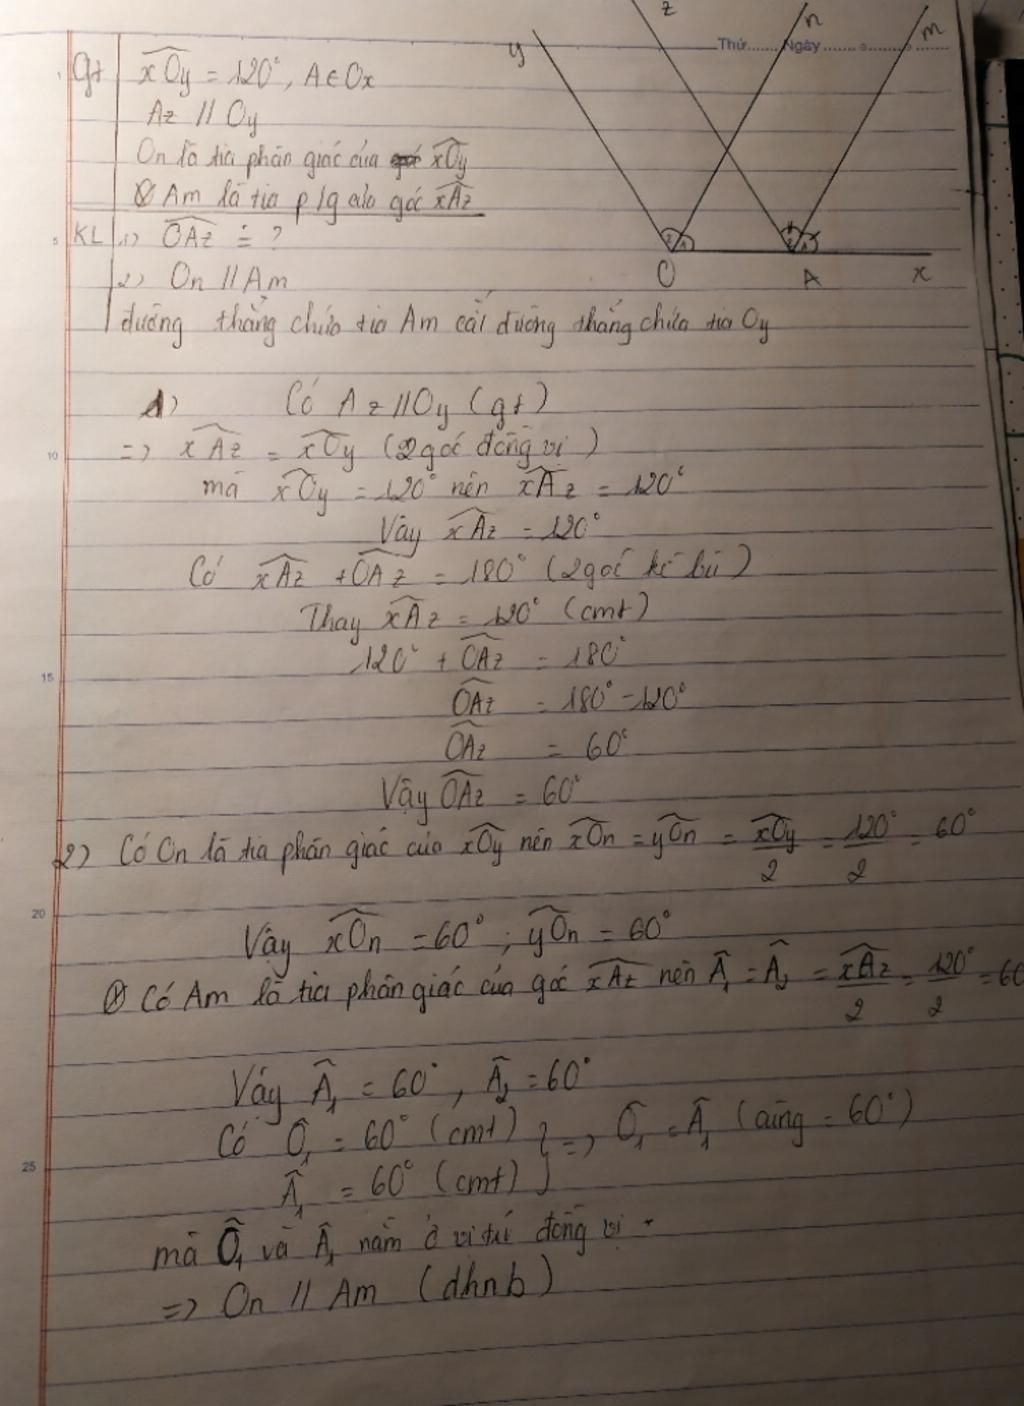 z
n
m
y
Thứ Ngày
Gt xOy = 120°, A ∈ Ox
Az // Oy
On là tia phân giác của xOy
Am là tia p/g của góc xAz
5
KL 1) OAz = ?
2) On // Am
O A x
đường thẳng chứa tia Am cắt đường thẳng chứa tia Oy
1) Có Az // Oy (gt)
10
=> xAz = xOy (2 góc đồng vị)
mà xOy = 120° nên xAz = 120°
Vậy xAz = 120°
Có xAz + OAz = 180° (2 góc kề bù)
Thay xAz = 120° (cmt)
120° + OAz = 180°
15
OAz = 180° - 120°
OAz = 60°
Vậy OAz = 60°
2) Có On là tia phân giác của xOy nên xOn = yOn = xOy/2 = 120°/2 = 60°
20
Vậy xOn = 60°; yOn = 60°
Có Am là tia phân giác của góc xAz nên Â₁ = Â₂ = xAz/2 = 120°/2 = 60
Vậy Â₁ = 60°, Â₂ = 60°
Có Ô₁ = 60° (cmt) } => Ô₁ = Â₁ (cùng = 60°)
25
Â₁ = 60° (cmt)
mà Ô₁ và Â₁ nằm ở vị trí đồng vị
=> On // Am (dhnb)